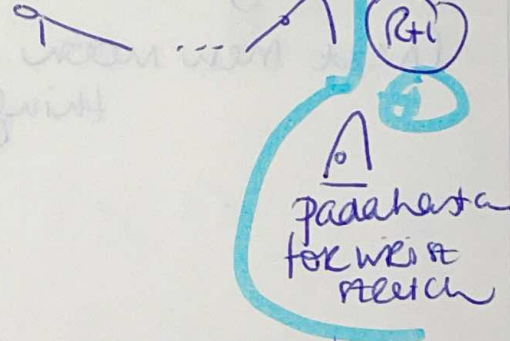 R+L
padahasta
for wrist
stretch